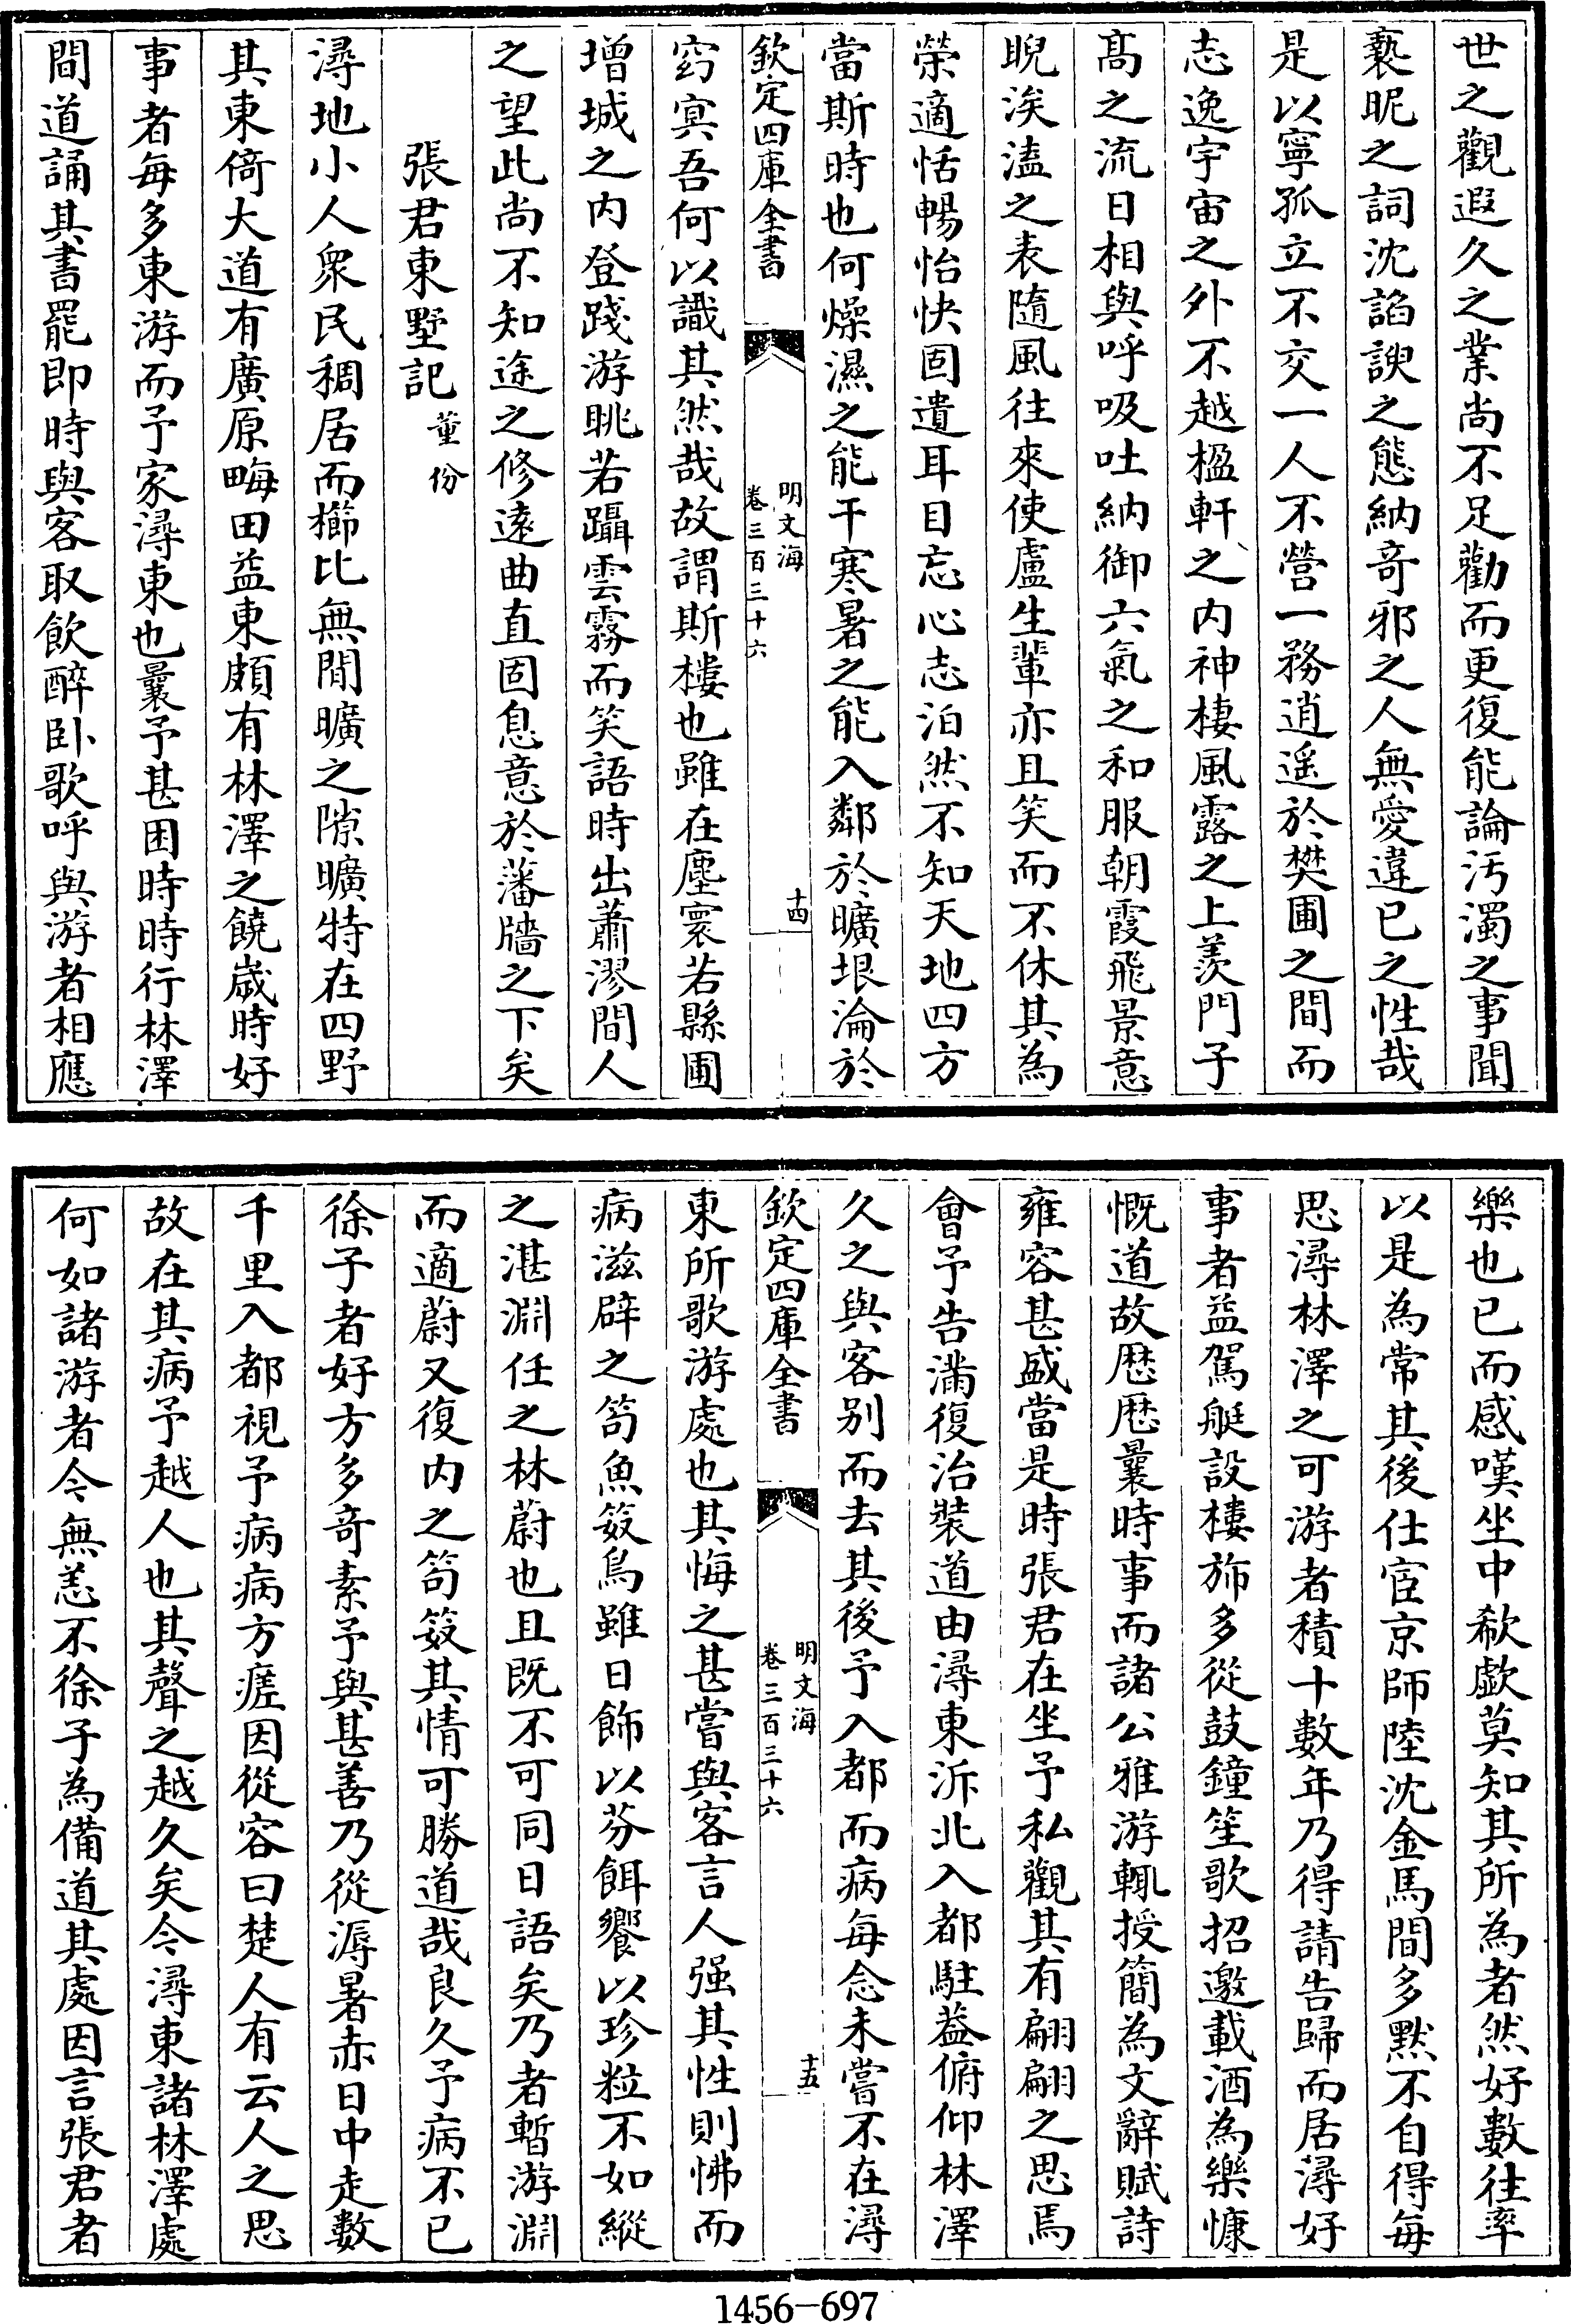 世之觀遐久之業尚不足勸而更復能論汚濁之事聞
褻昵之詞沈諂諛之態納竒邪之人無愛違已之性哉
是以寧孤立不交一人不營一務逍遥於樊圃之間而
志逸宇宙之外不越楹軒之内神棲風露之上羨門子
髙之流日相與呼吸吐納御六氣之和服朝霞飛景意
睨涘溘之表隨風往來使盧生輩亦且笑而不休其為
榮適恬暢怡快固遺耳目忘心志泊然不知天地四方
當斯時也何燥濕之能干寒暑之能入鄰於曠垠淪於
欽定四庫全書
明文海
卷三百三十六
十四
窈㝠吾何以識其然哉故謂斯樓也雖在塵寰若縣圃
增城之内登踐游眺若躡雲霧而笑語時出蕭漻間人
之望此尚不知途之修逺曲直固息意於藩牆之下矣
張君東墅記 董份
潯地小人衆民稠居而櫛比無間曠之隙曠特在四野
其東倚大道有廣原畮田益東頗有林澤之饒歳時好
事者每多東游而予家潯東也曩予甚困時時行林澤
間道誦其書罷即時與客取飲醉卧歌呼與游者相應
樂也已而感嘆坐中欷歔莫知其所為者然好數往率
以是為常其後仕宦京師陸沈金馬間多黙不自得每
思潯林澤之可游者積十數年乃得請告歸而居潯好
事者益駕艇設樓斾多從鼓鐘笙歌招邀載酒為樂慷
慨道故厯厯曩時事而諸公雅游輒授簡為文辭賦詩
雍容甚盛當是時張君在坐予私觀其有翩翩之思焉
會予告滿復治裝道由潯東泝北入都駐葢俯仰林澤
久之與客别而去其後予入都而病每念未嘗不在潯
欽定四庫全書
明文海
卷三百三十六
十五
東所歌游處也其悔之甚嘗與客言人强其性則怫而
病滋辟之笱魚笯鳥雖日飾以芬餌饗以珍粒不如縱
之湛淵任之林蔚也且既不可同日語矣乃者暫游淵
而適蔚又復内之笱笯其情可勝道哉良久予病不已
徐子者好方多竒素予與甚善乃從溽暑赤日中走數
千里入都視予病病方瘥因從容曰楚人有云人之思
故在其病予越人也其聲之越久矣今潯東諸林澤處
何如諸游者今無恙不徐子為備道其處因言張君者
1456—697